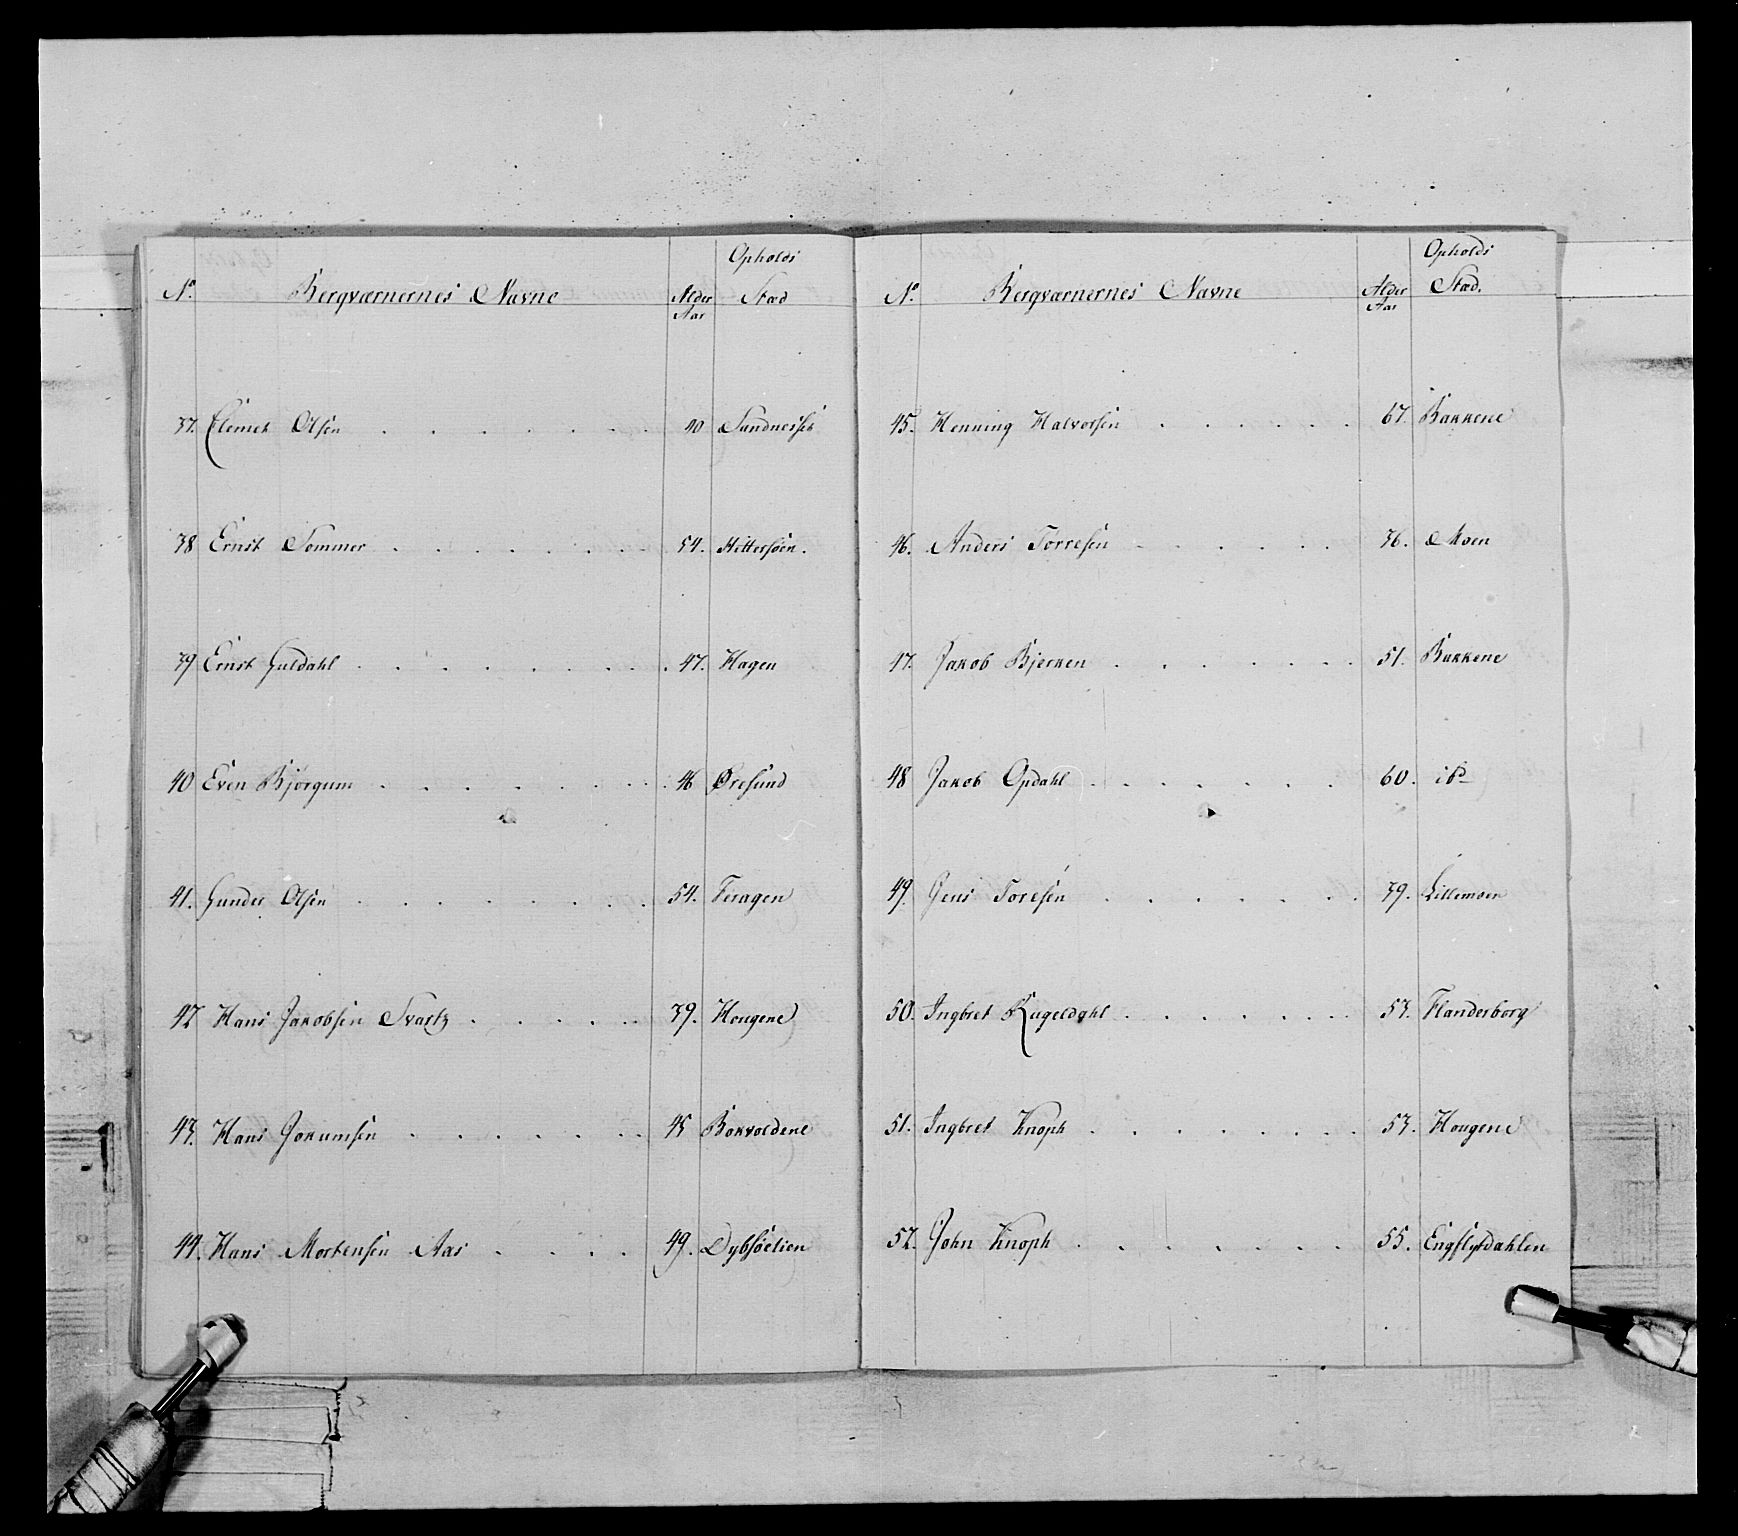 Opholds
No. Bergværnernes Navne Alder Stad
Aar
37. Elemet Olsen 40 Sandnesset
38 Ernst Sommer 54. Hittersöen.
39 Ernst Guldahl 47. Hagen
40 Even Bjørgum 46 Øresund
41. Gunder Olsen 54. Feragen
42 Hans Jakobsen Svartz 39. Hougene
43. Hans Jokumsen 45 Bokvoldene
44. Hans Mortensen Aas 49. Dybsöelien
Opholds
No. Bergværnernes Navne Alder Stad.
Aar
45. Henning Halvorsen 67. Bakkene
46. Anders Torresen 36. Moen
47. Jakob Bjerken 51. Bakkene
48 Jakob Opdahl 60. ibd
49. Jens Toresen 39. Lillemoen
50. Ingbret Kugeldahl 53. Flanderborg
51. Ingbret Knoph 53. Hougene
52. John Knoph 55. Engflydahlen